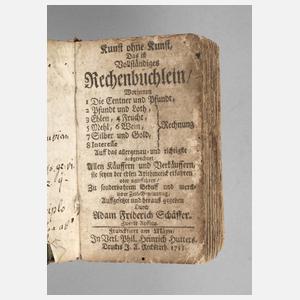 Kunst ohne Kunst,
Das ist
Vollständiges
Rechenbüchlein/
Worinnen
1 Die Centner und Pfundt,
2 Pfundt und Loth,
3 Ehlen, 4 Frucht,
5 Mehl, 6 Wein, Rechnung
7 Silber und Gold,
8 Interesse
Auf das allergenau- und richtigste
ausgerechnet
Allen Käuffern und Verkäuffern,
sie seyen der edlen Arithmetic erfahren
oder unerfahren/
Zu sonderbahrem Behuff und
Zeit-Gewinnung,
Auffgesetzt und heraus gegeben
Durch
Adam Friderich Schäffer.
Franckfurt am Mayn,
In Verl. Phil. Heinrich Hutters.
Druckts J. A.